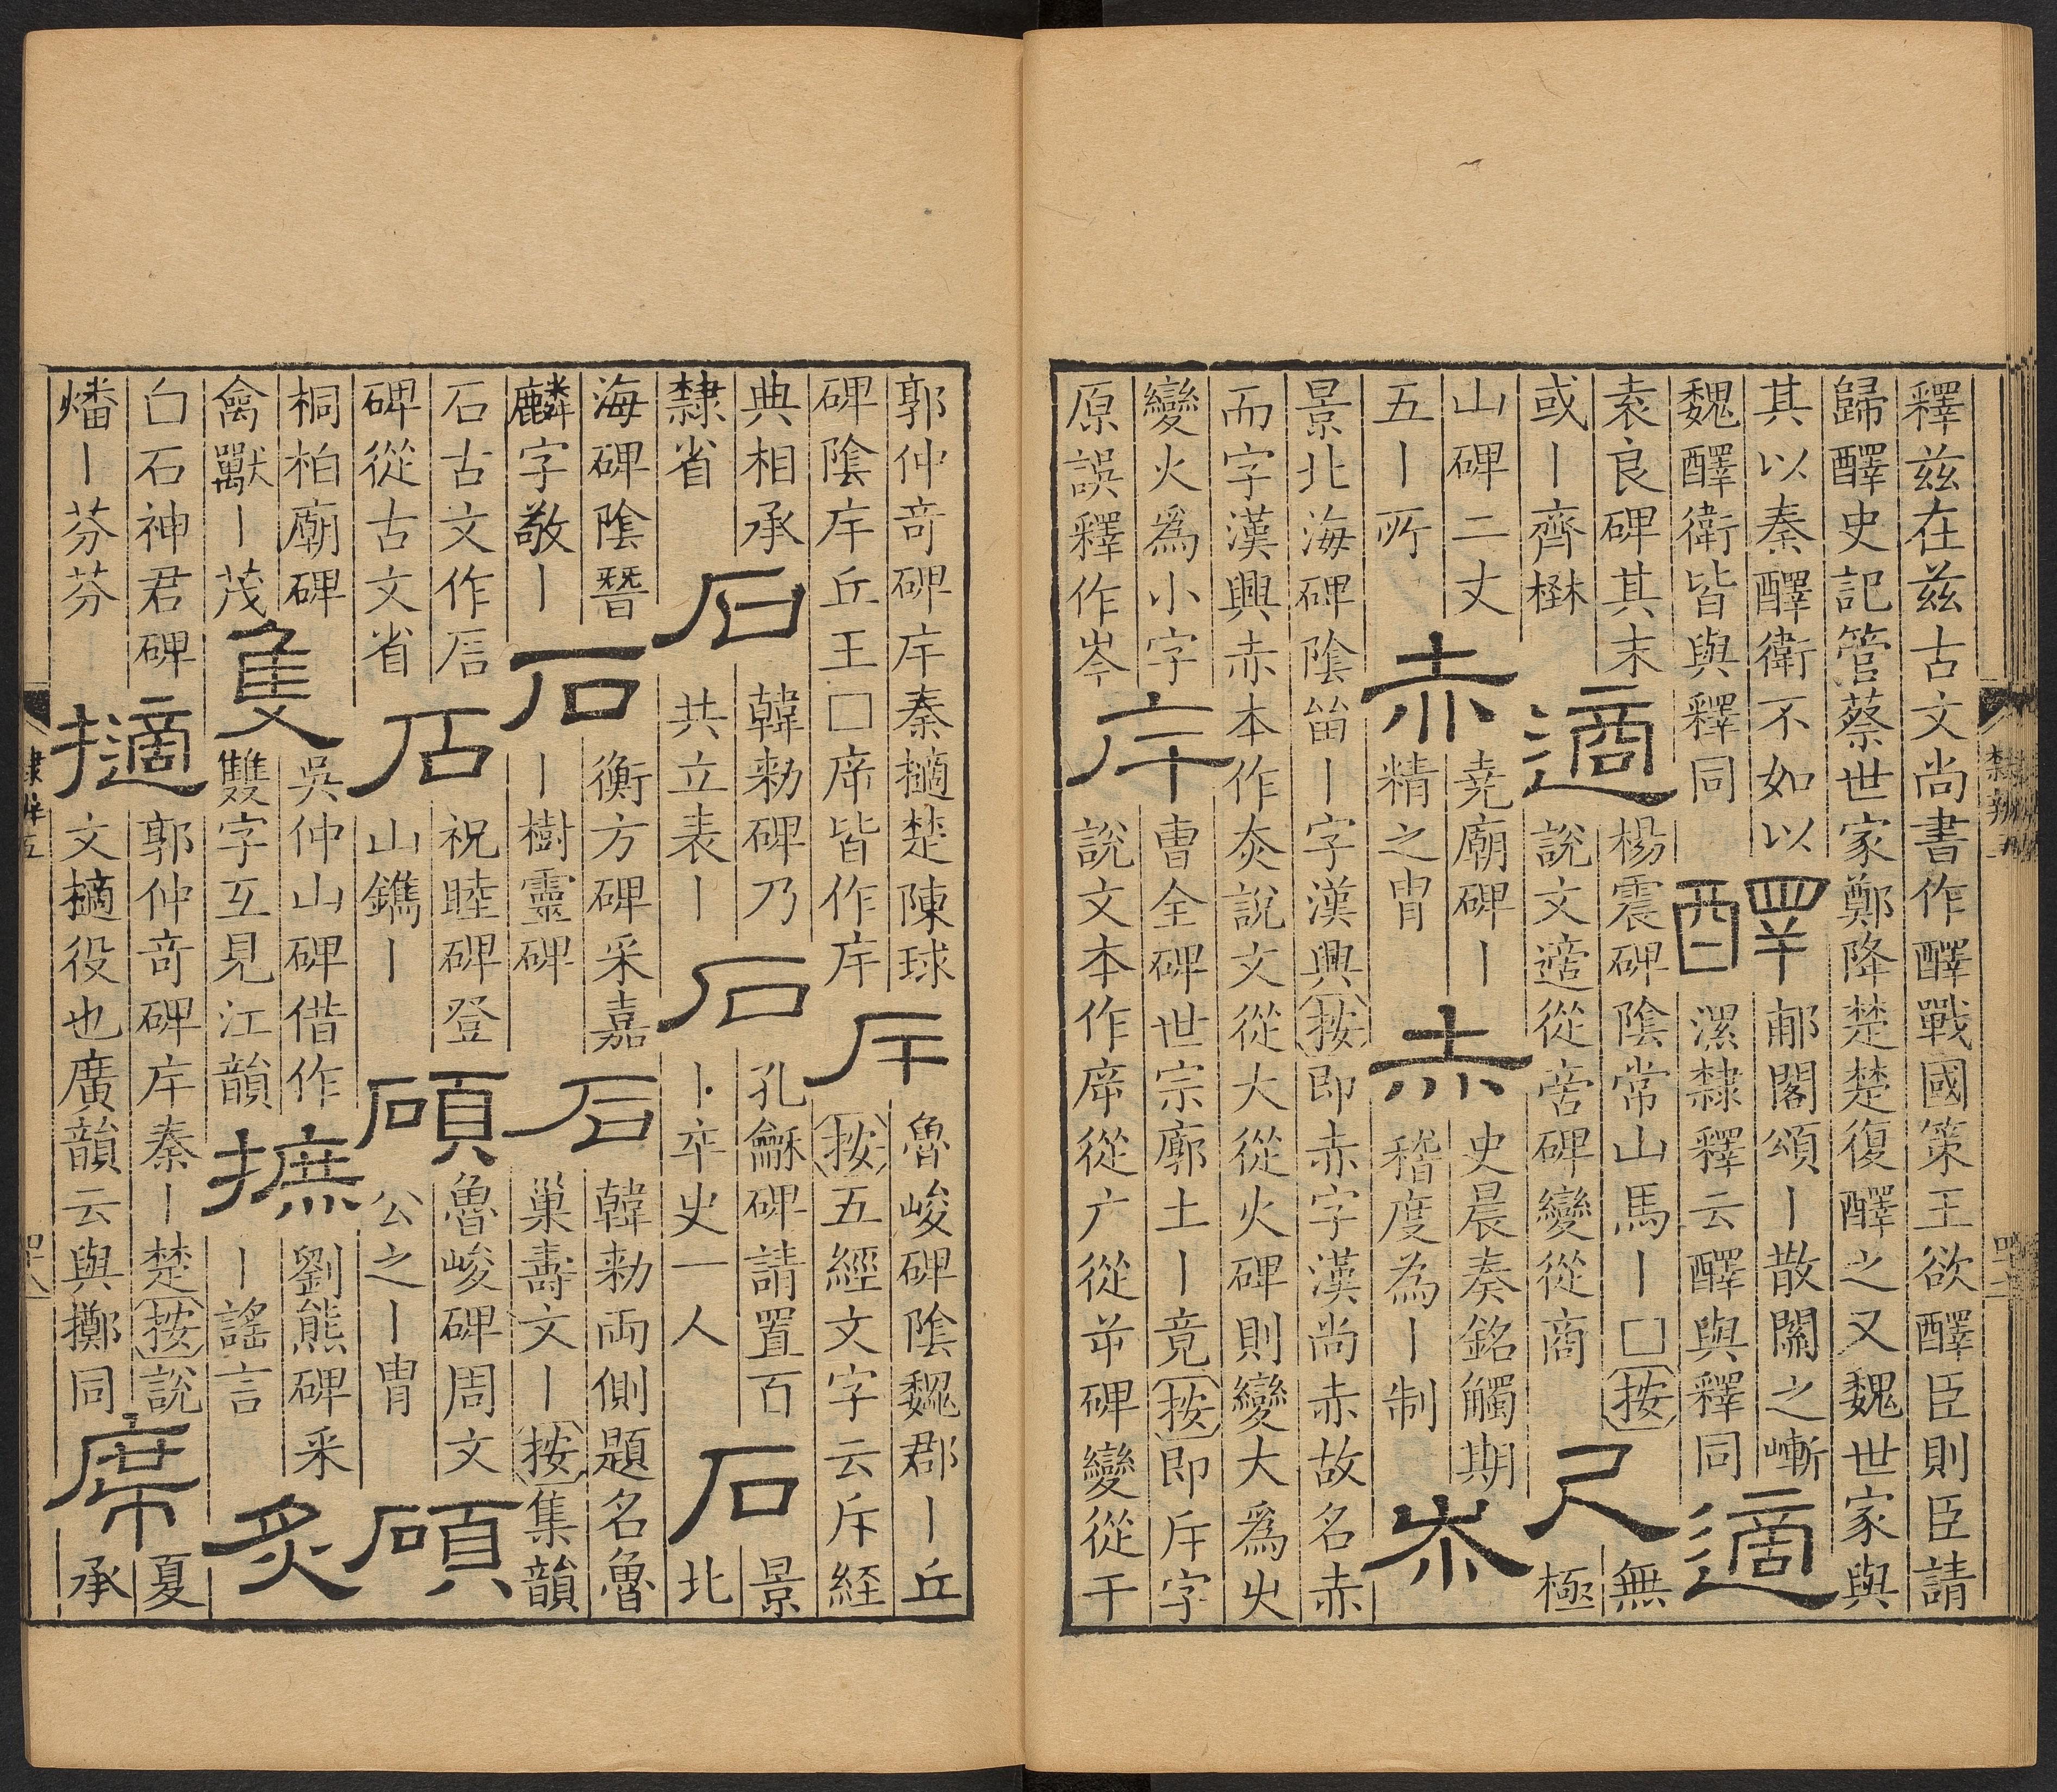 釋兹在兹古文尚書作醳戰國策王欲醳臣則臣請
歸醳史記管蔡世家鄭降楚楚復醳之又魏世家與
其以秦醳衛不如以
魏醳衛皆與釋同
醳
郙閣頌丨散關之嶃
漯隸釋云醳與釋同
適
袁良碑其末
或丨齊楙
適
楊震碑陰常山馬丨□按
說文適從啻碑變從商
尺
無
極
山碑二丈
五丨所
赤
堯廟碑丨
精之冑
赤
史晨奏銘觸期
稽度為丨制
赤
景北海碑陰甾丨字漢興按即赤字漢尚赤故名赤
而字漢興赤本作灻說文從大從火碑則變大爲火
變火爲小字
原誤釋作岑
斥
曹全碑世宗廓土丨竟按即斥字
說文本作㡿從广從屰碑變從干
隸辨五
郭仲奇碑斥秦擿楚陳球
碑陰斥丘王□㡿皆作斥
斥
魯峻碑陰魏郡丨丘
按五經文字云斥経
典相承
隸省
石
韓勑碑乃
共立表丨
石
孔龢碑請置百
丨卒史一人
石
景
北
海碑陰暨
麟字敬丨
石
衡方碑采嘉
丨樹靈碑
石
韓勑兩側題名魯
巢壽文丨按集韻
石古文作𠩺
碑從古文省
石
祝睦碑登
山鐫丨
碩
魯峻碑周文
公之丨冑
碩
桐柏廟碑
禽獸丨茂
隻
吳仲山碑借作
雙字互見江韻
摭
劉熊碑采
丨謠言
炙
白石神君碑
燔丨芬芬
擿
郭仲奇碑斥秦丨楚按說
文擿役也廣韻云與擲同
席
夏
承
隸辨五
四十八